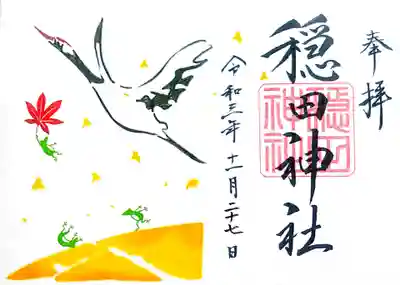 奉拝
穏田神社
隠田神社
令和三年十一月二十七日